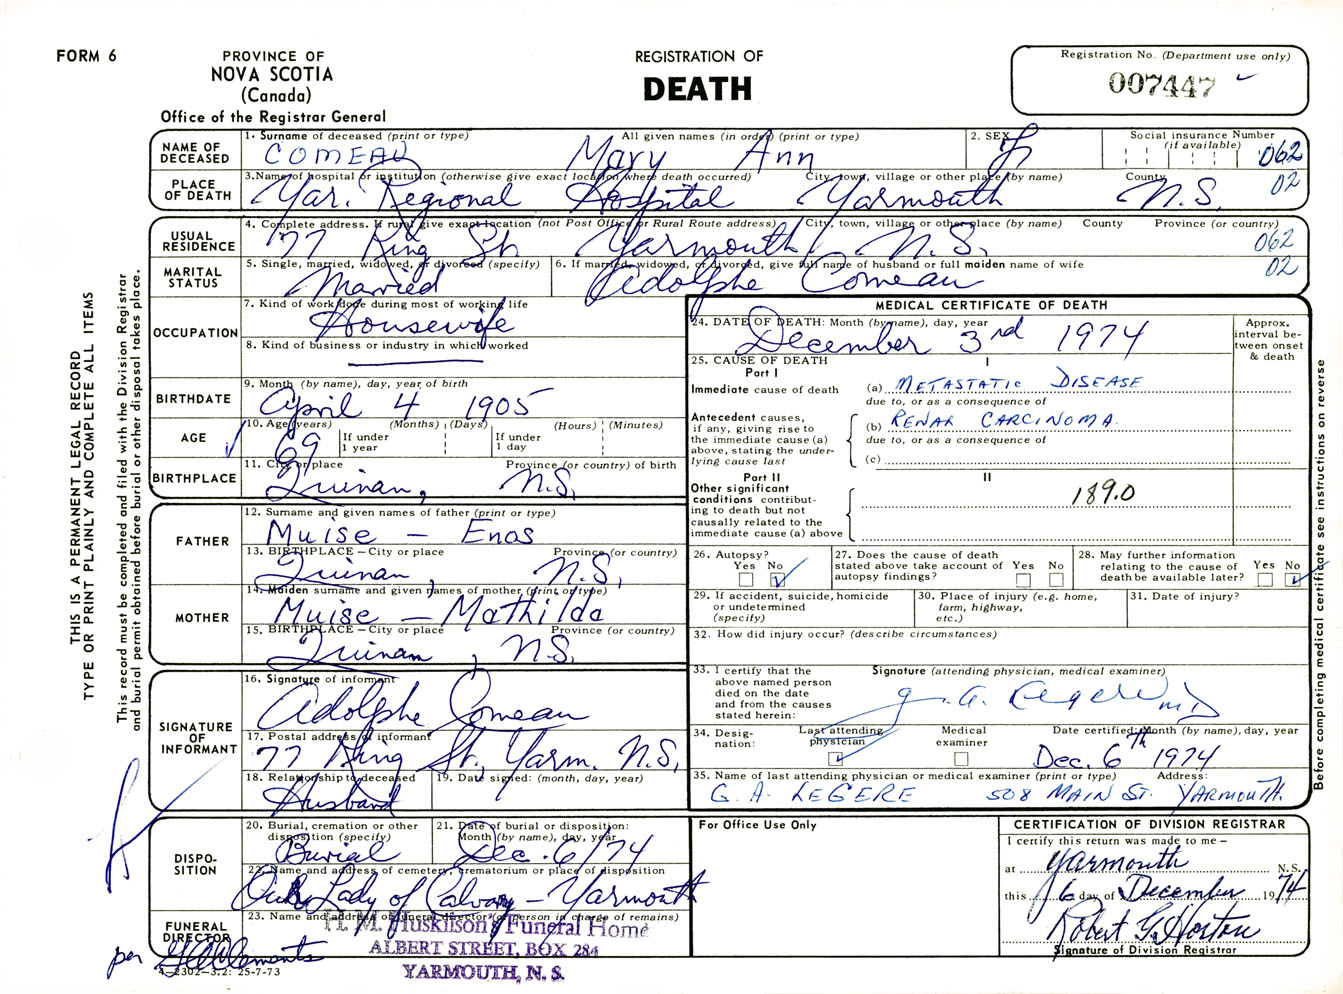 FORM 6
PROVINCE OF
NOVA SCOTIA
(Canada)
Office of the Registrar General
REGISTRATION OF
DEATH
Registration No. (Department use only)
007447
THIS IS A PERMANENT LEGAL RECORD
TYPE OR PRINT PLAINLY AND COMPLETE ALL ITEMS
This record must be completed and filed with the Division Registrar
and burial permit obtained before burial or other disposal takes place.
NAME OF DECEASED
1. Surname of deceased (print or type) All given names (in order) (print or type)
COMEAU Mary Ann
2. SEX
F
Social insurance Number
(if available)
062
PLACE OF DEATH
3. Name of hospital or institution (otherwise give exact location where death occurred) City, town, village or other place (by name) County
02
Yar. Regional Hospital Yarmouth N.S.
USUAL RESIDENCE
4. Complete address. If rural give exact location (not Post Office or Rural Route address) City, town, village or other place (by name) County Province (or country)
77 King St. Yarmouth, N.S. 062
MARITAL STATUS
5. Single, married, widowed, or divorced (specify)
Married
6. If married, widowed, or divorced, give full name of husband or full maiden name of wife
02
Adolphe Comeau
OCCUPATION
7. Kind of work done during most of working life
Housewife
8. Kind of business or industry in which worked
BIRTHDATE
9. Month (by name), day, year of birth
April 4 1905
AGE
10. Age (years) (Months) (Days) (Hours) (Minutes)
69
If under 1 year
If under 1 day
BIRTHPLACE
11. City or place Province (or country) of birth
Quinan, N.S.
FATHER
12. Surname and given names of father (print or type)
Muise — Enos
13. BIRTHPLACE — City or place Province (or country)
Quinan, N.S.
MOTHER
14. Maiden surname and given names of mother (print or type)
Muise — Mathilda
15. BIRTHPLACE — City or place Province (or country)
Quinan, N.S.
SIGNATURE OF INFORMANT
16. Signature of informant
Adolphe Comeau
17. Postal address of informant
77 King St., Yarm. N.S.
18. Relationship to deceased
Husband
19. Date signed: (month, day, year)
DISPO-
SITION
20. Burial, cremation or other
disposition (specify)
Burial
21. Date of burial or disposition:
Month (by name), day, year
Dec. 6/74
22. Name and address of cemetery, crematorium or place of disposition
Our Lady of Calvary — Yarmouth
FUNERAL DIRECTOR
23. Name and address of funeral director (or person in charge of remains)
H. M. Huskilson's Funeral Home
ALBERT STREET, BOX 284
YARMOUTH, N. S.
per
4—2302—3.2: 25-7-73
MEDICAL CERTIFICATE OF DEATH
24. DATE OF DEATH: Month (by name), day, year
December 3rd 1974
Approx. interval be-
tween onset
& death
25. CAUSE OF DEATH
Part I
I
Immediate cause of death
(a) METASTATIC DISEASE
due to, or as a consequence of
Antecedent causes,
if any, giving rise to
the immediate cause (a)
above, stating the under-
lying cause last
(b) RENAL CARCINOMA.
due to, or as a consequence of
(c)
Part II
II
Other significant
conditions contribut-
ing to death but not
causally related to the
immediate cause (a) above
189.0
26. Autopsy?
Yes No
27. Does the cause of death
stated above take account of
autopsy findings?
Yes No
28. May further information
relating to the cause of
death be available later?
Yes No
29. If accident, suicide, homicide
or undetermined
(specify)
30. Place of injury (e.g. home,
farm, highway,
etc.)
31. Date of injury?
32. How did injury occur? (describe circumstances)
33. I certify that the
above named person
died on the date
and from the causes
stated herein:
Signature (attending physician, medical examiner)
G. A. Legere MD
34. Desig-
nation:
Last attending
physician
Medical
examiner
Date certified: Month (by name), day, year
Dec. 6th 1974
35. Name of last attending physician or medical examiner (print or type) Address:
G. A. LEGERE 508 MAIN ST. YARMOUTH.
Before completing medical certificate see instructions on reverse
For Office Use Only
CERTIFICATION OF DIVISION REGISTRAR
I certify this return was made to me —
at Yarmouth N.S.
this 6 day of December 1974
Robert G. Horton
Signature of Division Registrar